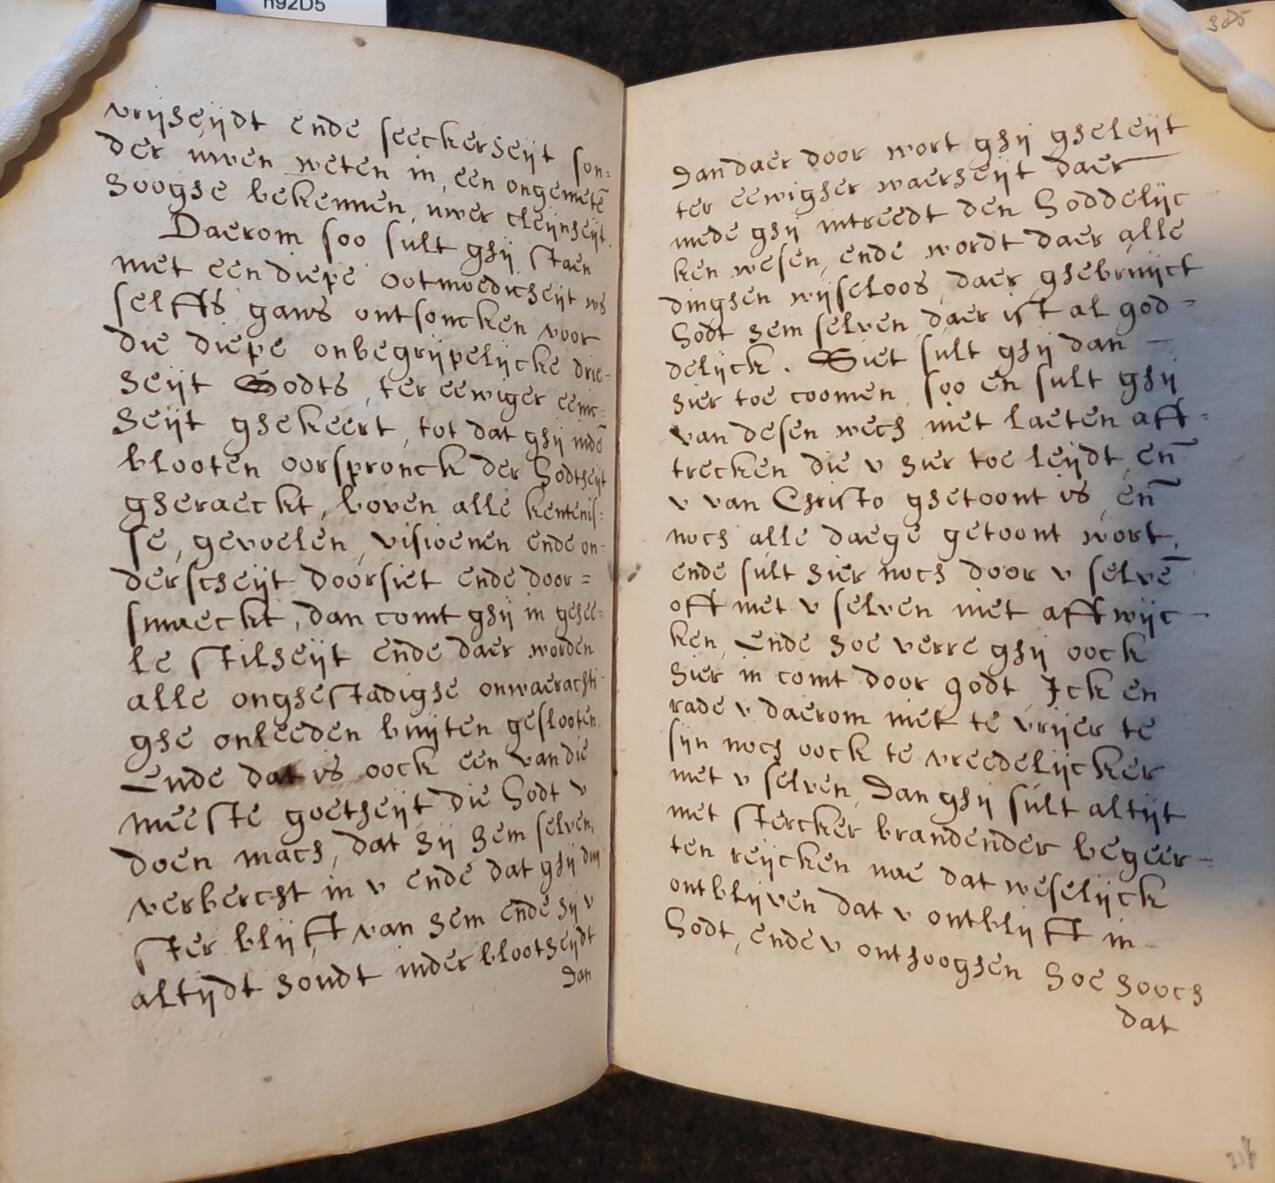 n92D5
vrijheijdt ende seeckerheijt son:
der uwen weten in, een ongemetē
hooghe bekennen, uwer cleijnheijt.
Daerom soo sult ghij staen
met een diepe ootmoedicheijt ws
selffs gans ontsoncken voor
die diepe onbegrijpelijcke drie-
heijt Godts, ter eewiger eenic:
heijt ghekeert, tot dat ghij indē
blooten oorspronck der Godtheijt
gheraeckt, boven alle kentenis:
se, gevoelen, visioenen ende on-
derscheijt doorsiet ende door=
smaeckt, dan comt ghij in gehee-
le stilheijt ende daer worden
alle onghestadighe onwaerachti-
ghe onleeden buijten geslooten.
Ende dat is oock een van die
meeste goetheijt die Godt v
doen mach, dat hij hem selven,
verbercht in v ende dat ghij duij
ster blijft van hem ende hij v
altijdt houdt inder blootheijdt
Dan
305
Dan daer door wort ghij gheleijt
ter eewigher waerheijt daer
mede ghij intreedt den Goddelijc
ken wesen, ende wordt daer alle
dinghen wijseloos, daer ghebruijct
Godt hem selven, daer ist al god-
delijck. Siet sult ghij dan —
hier toe coomen, soo en sult ghij
van desen wech niet laeten aff-
trecken die v hier toe leijdt, eñ
v van Christo ghetoont is, eñ
noch alle daege getoont wort,
ende sult hier noch door v selvē
off met v selven niet affwijc -
ken, Ende hoe verre ghij oock
hier in comt door Godt Ick en
rade v daerom niet te vrijer te
sijn noch oock te vreedelijcker
met v selven, Dan ghij sult altijt
met stercker brandender begeer-
ten reijcken nae dat weselijck
ontblijven dat v ontblijft in-
Godt, ende v onthooghen hoe hooch
dat